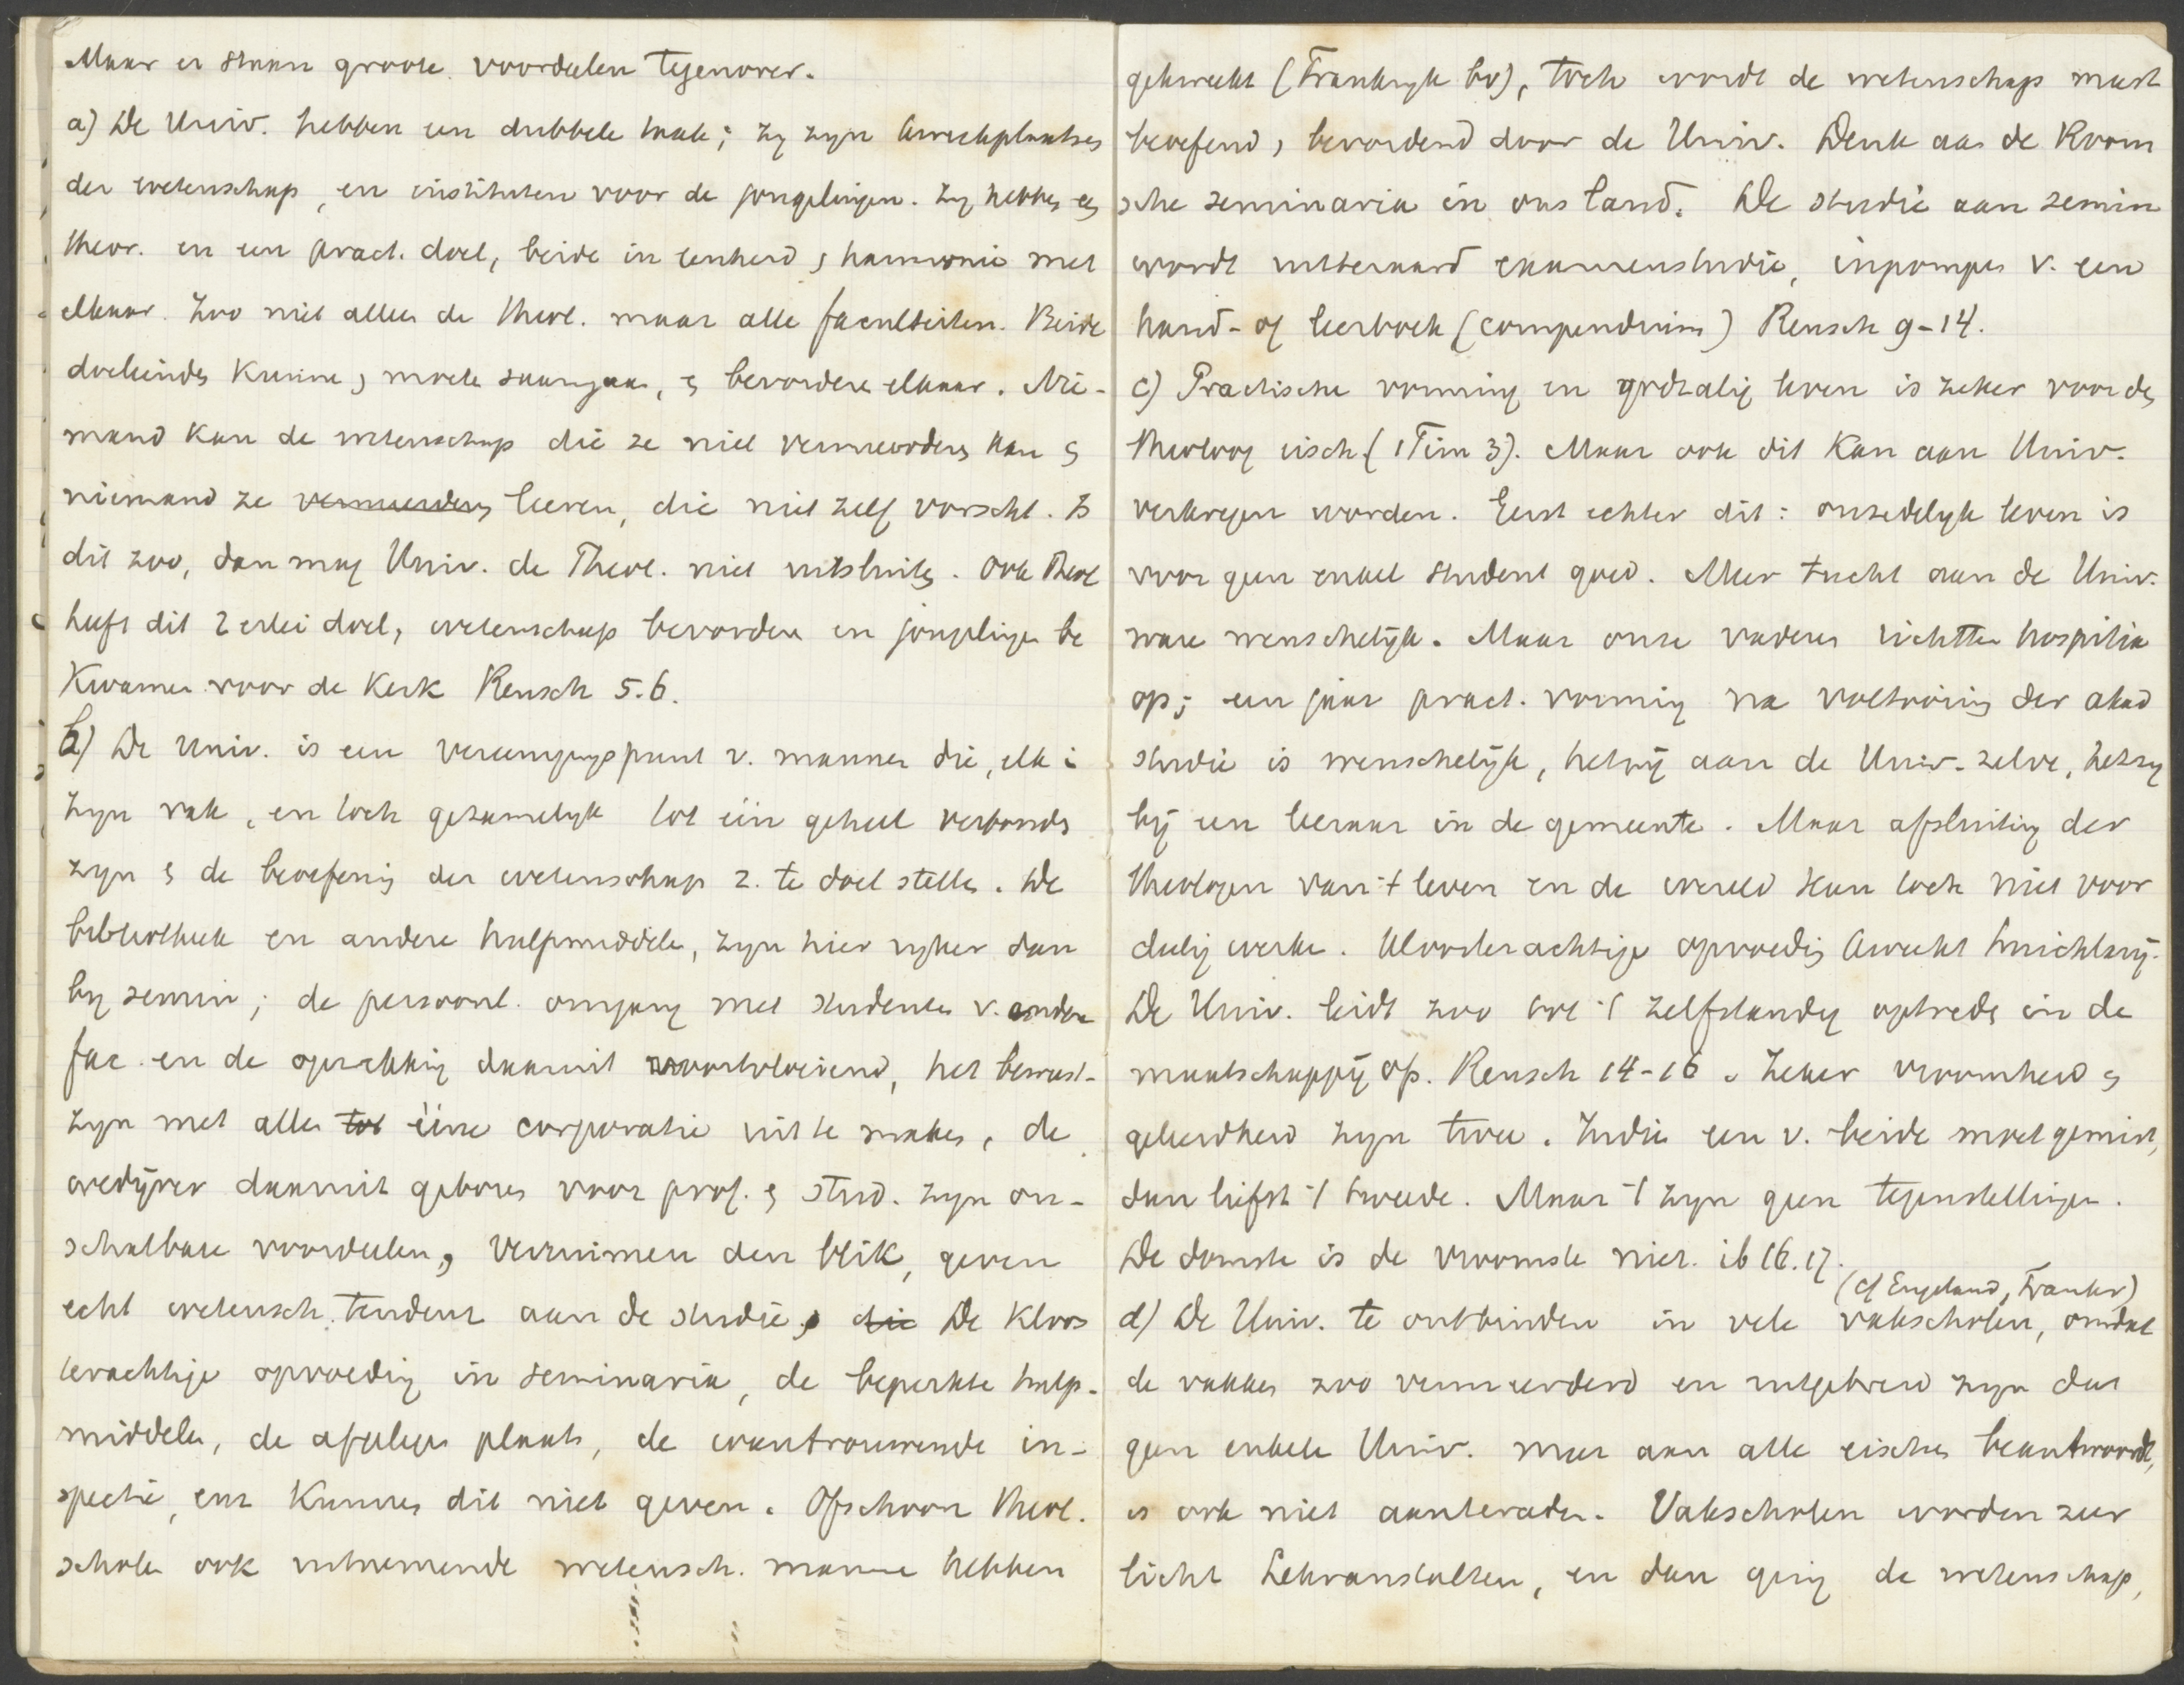 Maar er staan groote voordeelen tegenover.
a) De Univ. hebben een dubbele taak; zij zijn kweekplaatsen
der wetenschap, en instituten voor de jongelingen. Zij hebben een
theor. en een pract. doel, beide in eenheid & harmonie met
elkaar. Zoo niet alleen de theol. maar alle faculteiten. Beide
doeleinden kunne & moete saamgaan, & bevordere elkaar. Nie-
mand kan de wetenschap die ze niet vermeerderen kan &
niemand ze vermeerderen leeren, die niet zelf vorscht. Is
dit zoo, dan mag Univ. de Theol. niet uitsluiten. Ook Theol
heeft dit 2erlei doel, wetenschap bevordere en jongelingen be
kwamen voor de Kerk Reusch 5.6.
b) De Univ. is een vereenigingspunt v. mannen die, elk i
zijn vak, en toch gezamelijk tot één geheel verbonden
zijn & de beoefening der wetenschap z. te doel stellen. De
bibliotheek en andere hulpmiddele, zijn hier rijker dan
bij semin; de persoonl. omgang met studenten v. andere
fac. en de opwekking daaruit voortvloeiend, het bewust-
zijn met allen tot ééne corporatie uit te maken, de
wedijver daaruit geboren voor prof. & stud. zijn on-
schatbare voordeelen, verruimen den blik, geven
echt wetensch. tendenz aan de studie, die De kloos
terachtige opvoeding in seminaria, de beperkte hulp-
middelen, de afgelegen plaats, de wantrouwende in-
spectie, enz kunnen dit niet geven. Ofschoon theol.
scholen ook uitnemende wetensch. manne hebben
gekweekt (Frankrijk bv), toch wordt de wetenschap meest
beoefend, bevorderd door de Univ. Denk aan de Room
sche seminaria in ons land. De studie aan semin
wordt uitteraard examenstudie, inpompen v. een
hand- of leerboek (compendium) Reusch 9-14.
c) Practische vorming en godzalig leven is zeker voor de
theoloog eisch (1Tim 3). Maar ook dit kan aan Univ.
verkregen worden. Eerst echter dit: onzedelijk leven is
voor geen enkel student goed. Meer tucht aan de Univ.
ware wenschelijk. Maar onze vaderen richtten hospitia
op; een jaar pract. vorming na voltooiing der akad
studie is wenschelijk, hetzij aan de Univ. zelve, hetzij
bij een leeraar in de gemeente. Maar afsluiting der
theologen van 't leven en de wereld kan toch niet voor
deelig werke. Kloosterachtige opvoeding kweekt huichlarij.
De Univ. leidt zoo tot 't zelfstandig optreden in de
maatschappij op. Reusch 14-16. Zeker vroomheid &
geleerdheid zijn twee. Indie een v. beide moet gemist,
dan liefst 't tweede. Maar 't zijn geen tegenstellingen.
De domste is de vroomste niet. ib 16.17.
(cf Engeland, Frankr)
d) De Univ. te ontbinden in vele vakscholen, omdat
de vakken zoo vermeerderd en uitgebreid zijn dat
geen enkele Univ. meer aan alle eischen beantwoordt,
is ook niet aanteraden. Vakscholen worden zeer
licht Lehranstalten, en dan ging de wetenschap,